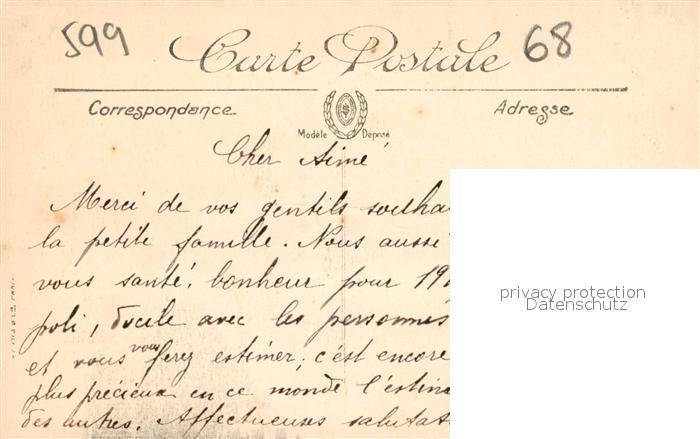 599
68
Carte Postale
Correspondance
Adresse
Modèle Déposé
Cher Aimé
Merci de vos gentils souha
la petite famille. Nous aussi
vous santé, bonheur pour 19
poli, docile avec les personnes
et vous vous ferez estimer; c'est encore
plus précieux en ce monde l'estim
des autres. Affectueuses salutat
privacy protection
Datenschutz